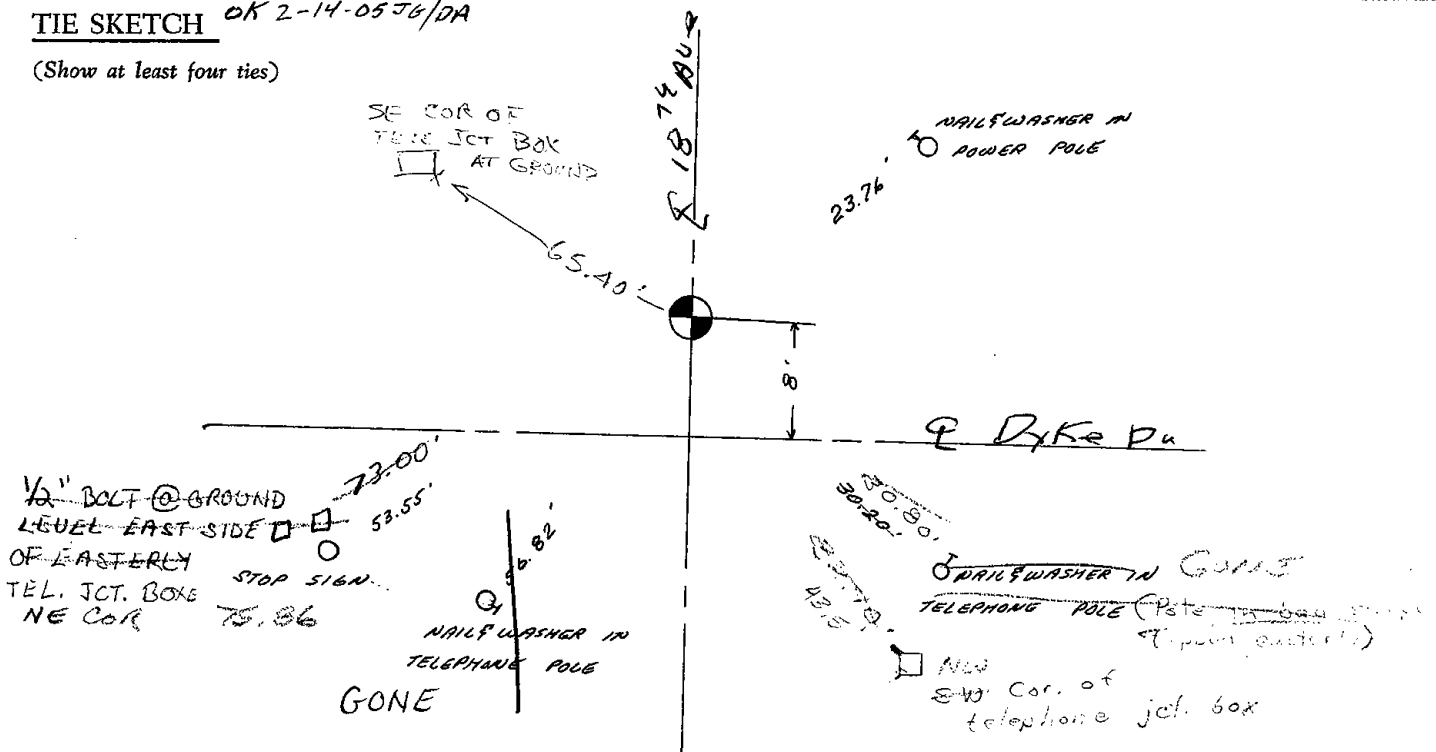 TIE SKETCH OK 2-14-05 JG/DA
(Show at least four ties)
SE COR OF
TELE JCT BOX
AT GROUND
℄ 18TH AVE
NAIL & WASHER IN
POWER POLE
23.76'
65.40'
8'
℄ Dyke
73.00'
1/2" BOLT @ GROUND
LEVEL EAST SIDE
OF EASTERLY
TEL. JCT. BOXE
NE COR 75.86
53.55'
STOP SIGN
56.82'
NAIL & WASHER IN
TELEPHONE POLE
GONE
30.20'
NAIL & WASHER IN GONE
TELEPHONE POLE
43.5
NW
SW Cor. of
telephone jct. box